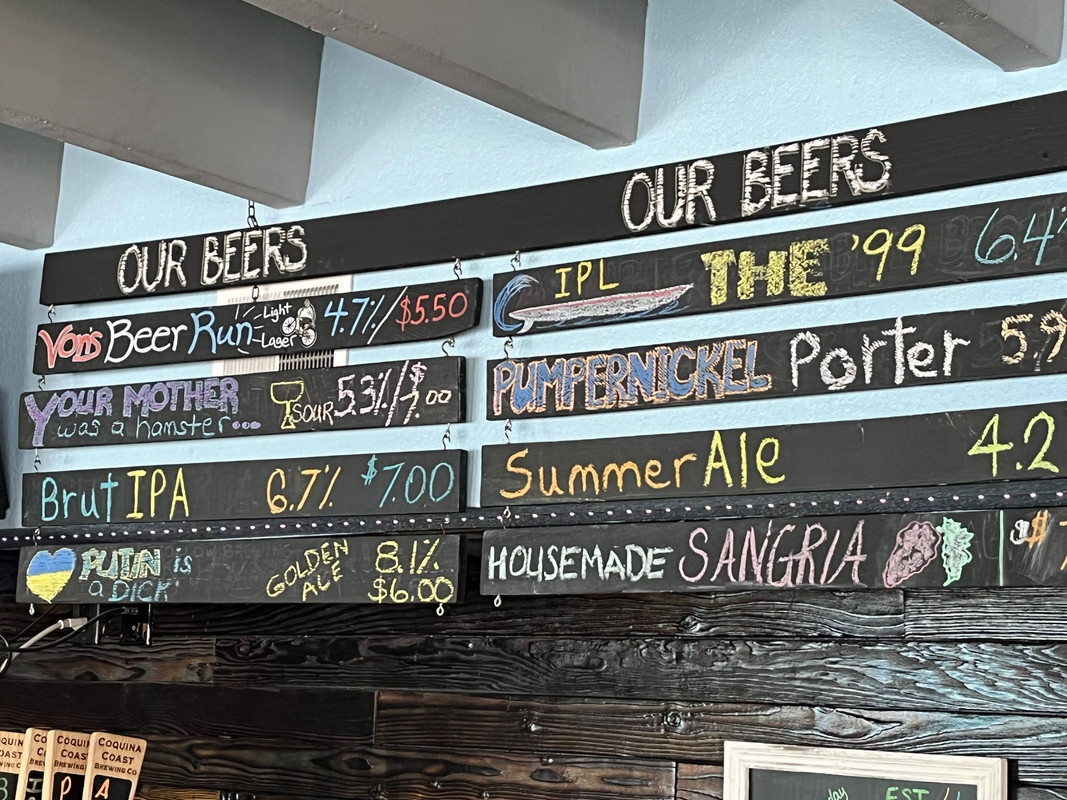 OUR BEERS
Von's Beer Run Light Lager 4.7%/$5.50
YOUR MOTHER
was a hamster... SOUR 5.3%/$7.00
Brut IPA 6.7% $7.00
PUTIN is
a DICK
GOLDEN
ALE
8.1%
$6.00
OUR BEERS
IPL THE '99 6.4%
PUMPERNICKEL Porter 5.9
Summer Ale 4.2
HOUSEMADE SANGRIA $7
COQUINA
COAST
BREWING CO
P
COQUINA
COAST
BREWING CO
A
EST